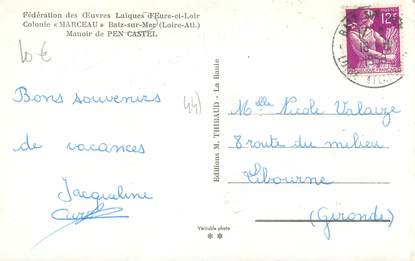 Fédération des Œuvres Laïques d'Eure-et-Loir
Colonie «MARCEAU» Batz-sur-Mer (Loire-Atl.)
Manoir de PEN CASTEL
10 €
44)
Bons souvenirs
de vacances
Jacqueline
Editions M. THIBAUD - La Baule
12F
Melle Nicole Valaize
8 route du milieu
Libourne
(Gironde)
Véritable photo